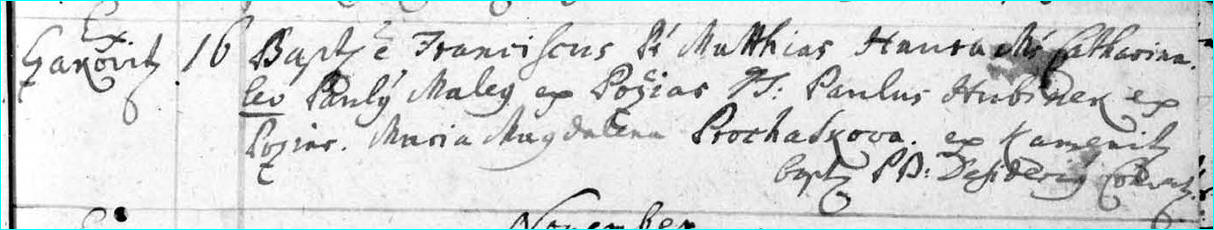 Ex
Jakovitz 16 Baptz. e Franciscus P. Matthias Haura M. Catharina.
lev Pauly Maley ex Pozias P.I: Paulus Hubinek ex
Pozias. Maria Magdalena Prochaskova. ex Kamenitz
baptz PD: Desidery
November